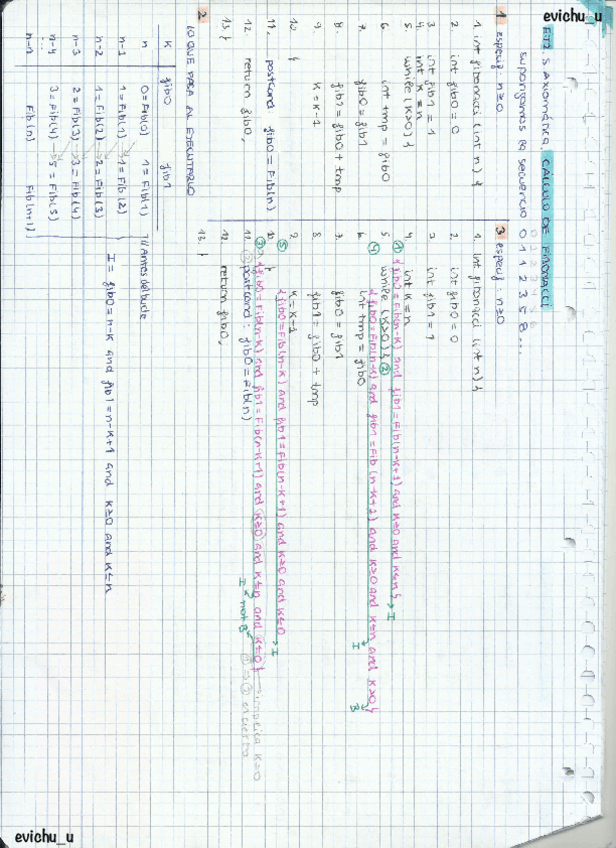 evichu_u
ET2. S. Axiomática. CÁLCULO DE FIBONACCI
supongamos la secuencia 0 1 1 2 3 5 8 ...
1 especif: n≥0
1. int fibonacci (int n) {
2. int fib0 = 0
3. int fib1 = 1
4. int k = n
5. while (k>0) {
6. int tmp = fib0
7. fib0 = fib1
8. fib1 = fib0 + tmp
9. k = k-1
10. }
11. postcond: fib0 = Fib(n)
12. return fib0;
13. }
2 LO QUE PASA AL EJECUTARLO
k fib0 fib1
n 0 = Fib(0) 1 = Fib(1) // Antes del bucle
n-1 1 = Fib(1) 1 = Fib(2)
n-2 1 = Fib(2) 2 = Fib(3)
n-3 2 = Fib(3) 3 = Fib(4)
n-4 3 = Fib(4) 5 = Fib(5)
n-n Fib(n) Fib(n+1)
I = fib0 = n-k and fib1 = n-k+1 and k≥0 and k≤n
3 especif: n≥0
1. int fibonacci (int n) {
2. int fib0 = 0
3. int fib1 = 1
4. int k = n
① {fib0 = Fib(n-k) and fib1 = Fib(n-k+1) and k≥0 and k≤n} → I
5. while (k>0) { ②
④ {fib0 = Fib(n-k) and fib1 = Fib(n-k+1) and k≥0 and k≤n and k>0} I B
6. int tmp = fib0
7. fib0 = fib1
8. fib1 = fib0 + tmp
9. k = k-1
⑤ {fib0 = Fib(n-k) and fib1 = Fib(n-k+1) and k≥0 and k≤0 → I
10. }
③ {fib0 = Fib(n-k) and fib1 = Fib(n-k+1) and k≥0 and k≤n and k≤0} → implica k=0
I y not B
11. postcond: fib0 = Fib(n)
es cierto
12. return fib0;
13. }
evichu_u